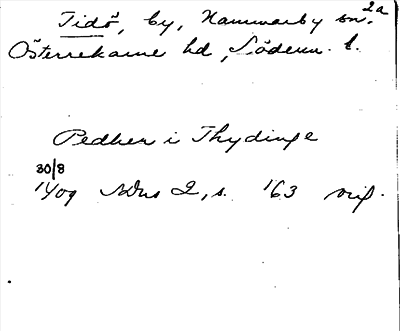 2a
Tidö, by, Hammarby sn.
Österrekarne hd, Söderm. l.
Pedher i Thydinge
30/8
1409 SDns 2, s. 163 orig.